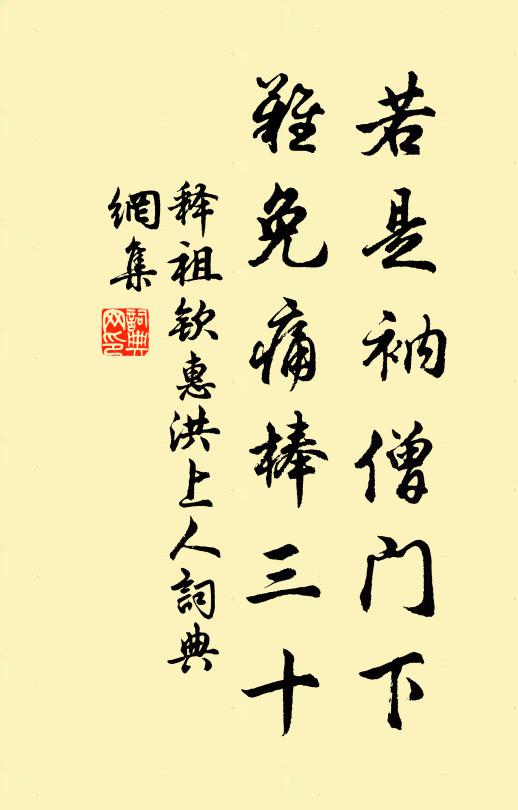 若是衲僧门下
难免痛棒三十
释祖钦惠洪上人詞典
網集
詞典
网印